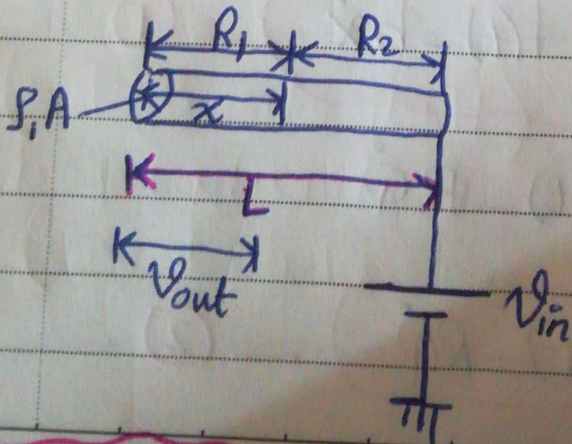 R₁ R₂
ρ, A
x
L
Vout
Vin